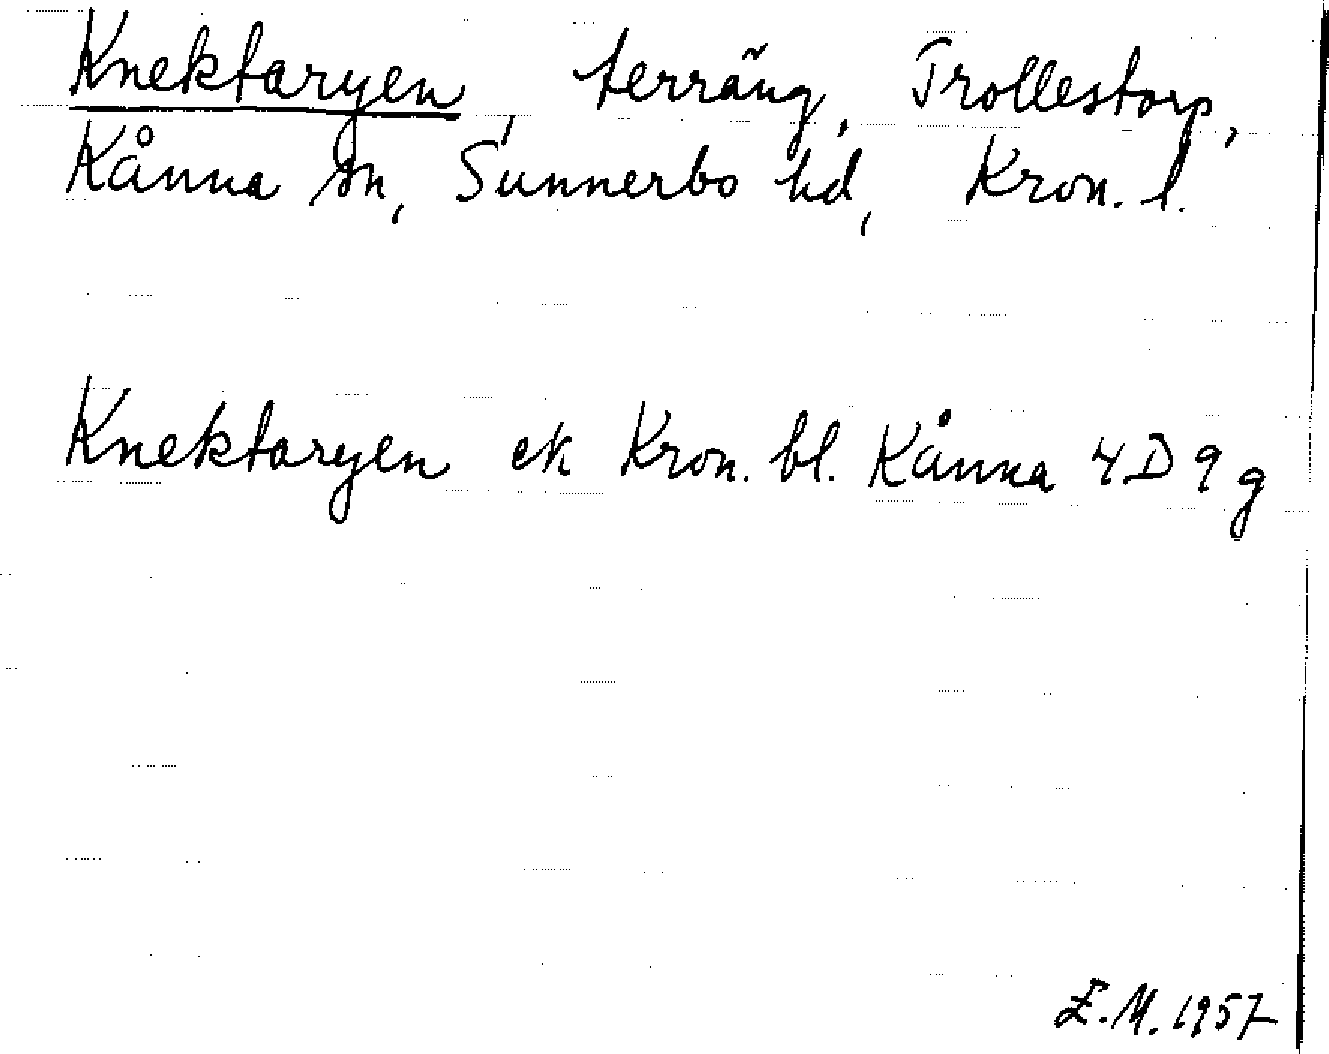 Knektaryen, terräng, Trollestorp,
Kånna sn, Sunnerbo hd, Kron. l.
Knektaryen ek Kron. bl. Kånna 4D 9g
E.M. 1957